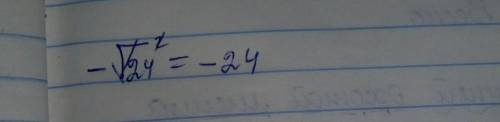 -√24² = -24